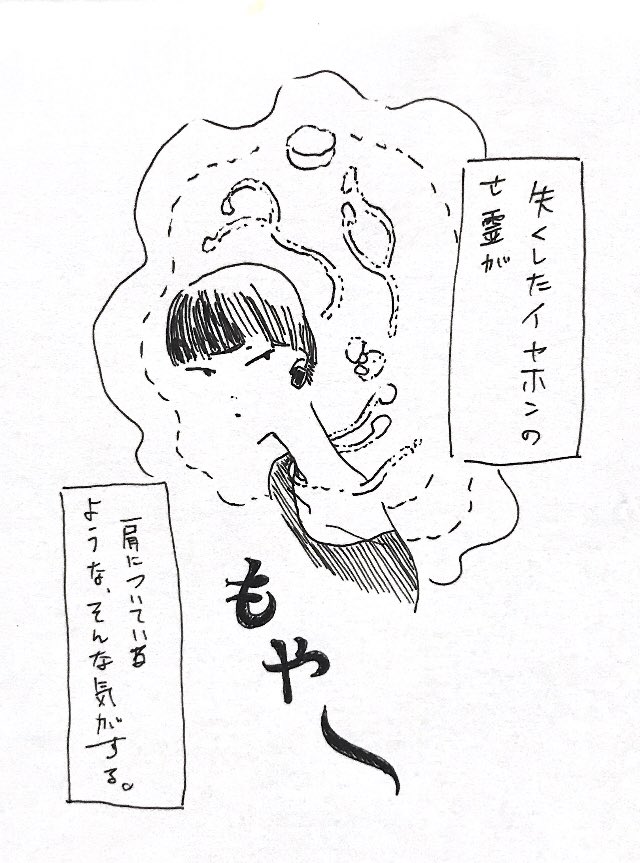 失くしたイヤホンの
亡霊が
肩についている
ような、そんな気がする。
もや〜